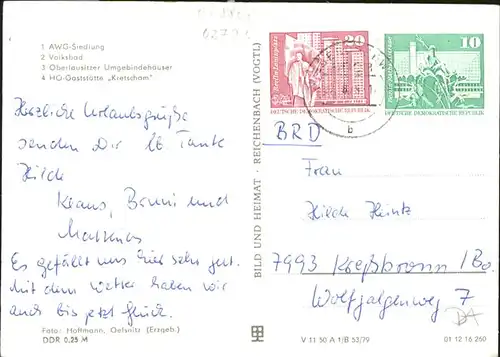 1 AWG-Siedlung
2 Volksbad
3 Oberlausitzer Umgebindehäuser
4 HO-Gaststätte „Kretscham"
Herzliche Urlaubsgrüße
senden Dir lb Tante
Hilde
Klaus, Bruni und
Es gefällt uns hier sehr gut.
Mit dem Wetter haben wir
auch bis jetzt Glück.
Foto: Hoffmann, Oelsnitz (Erzgeb.)
DDR 0,25 M
BILD UND HEIMAT · REICHENBACH (VOGTL)
20
DEUTSCHE DEMOKRATISCHE REPUBLIK
10
DEUTSCHE DEMOKRATISCHE REPUBLIK
b
BRD
Frau
Hilde Heintz
7993 Kreßbronn /Bo.
7
V 11 50 A 1/B 53/79
01 12 16 260